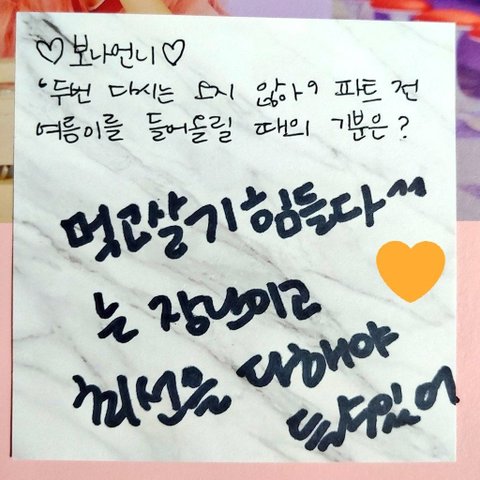 ♡보나언니♡
'두번 다시는 오지 않아' 파트 전
여름이를 들어올릴 때의 기분은?
먹고살기힘들다~
는 장난이고
최선을 다해야
들수있어